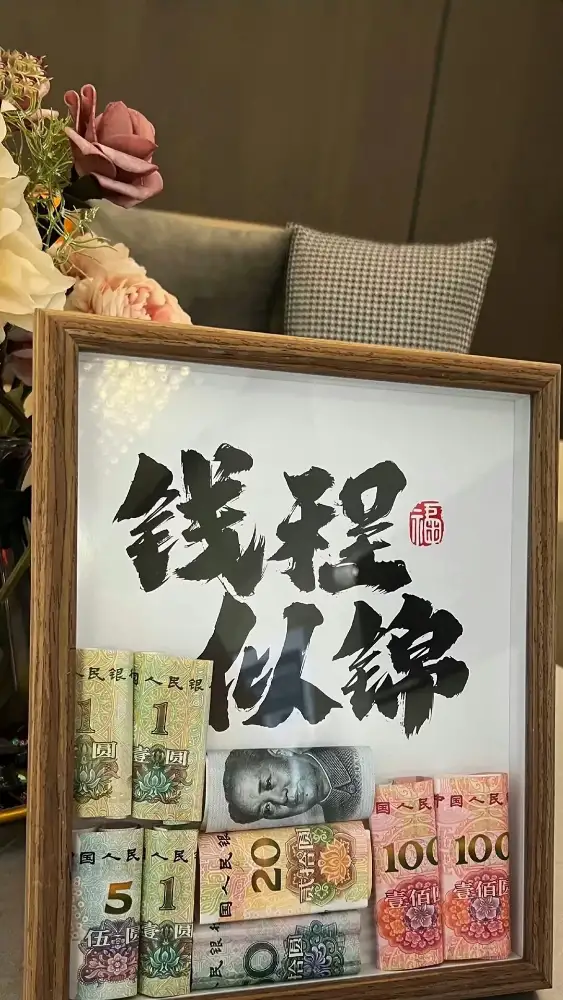 钱程
福
似锦
人民银
1
壹圆
国人民银
1
壹圆
国人民
5
伍圆
人民
1
壹圆
中国人民银
20
贰拾圆
0
拾圆
国人民
100
壹佰圆
中国人民
100
壹佰圆